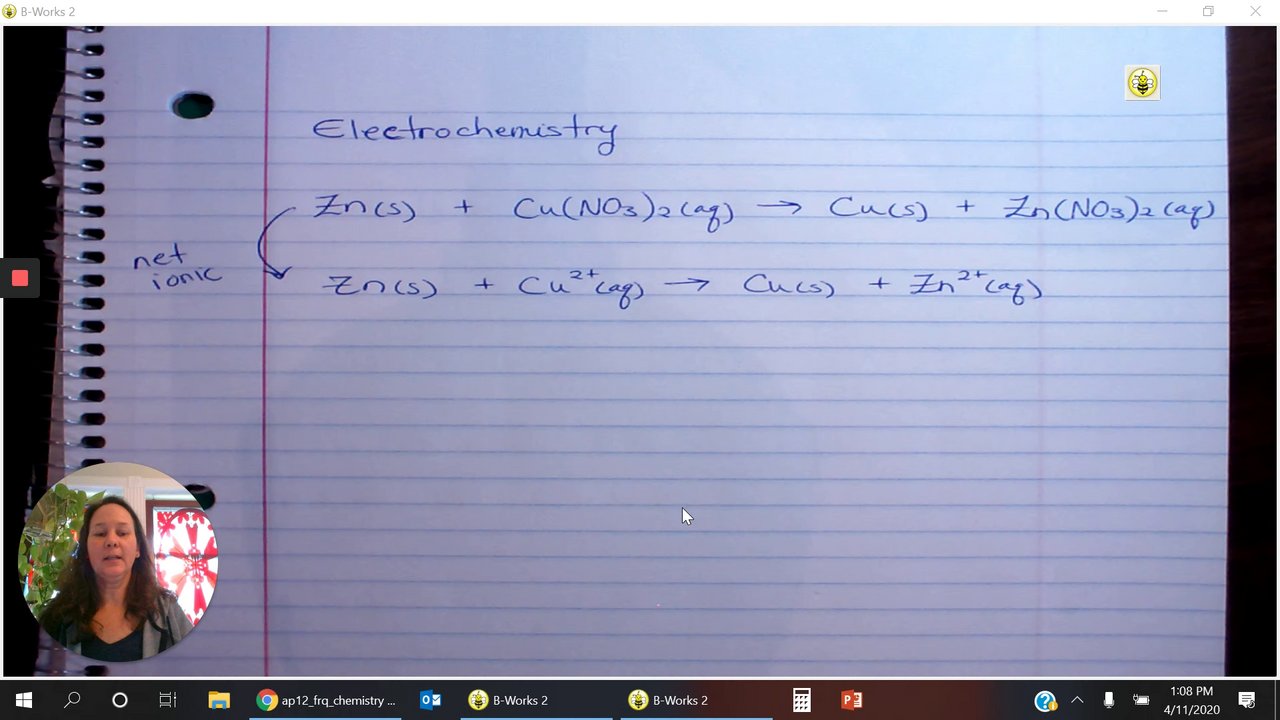 B-Works 2
Electrochemistry
Zn(s) + Cu(NO3)2(aq) → Cu(s) + Zn(NO3)2(aq)
net
ionic
Zn(s) + Cu²⁺(aq) → Cu(s) + Zn²⁺(aq)
ap12_frq_chemistry ... B-Works 2 B-Works 2
1:08 PM
4/11/2020